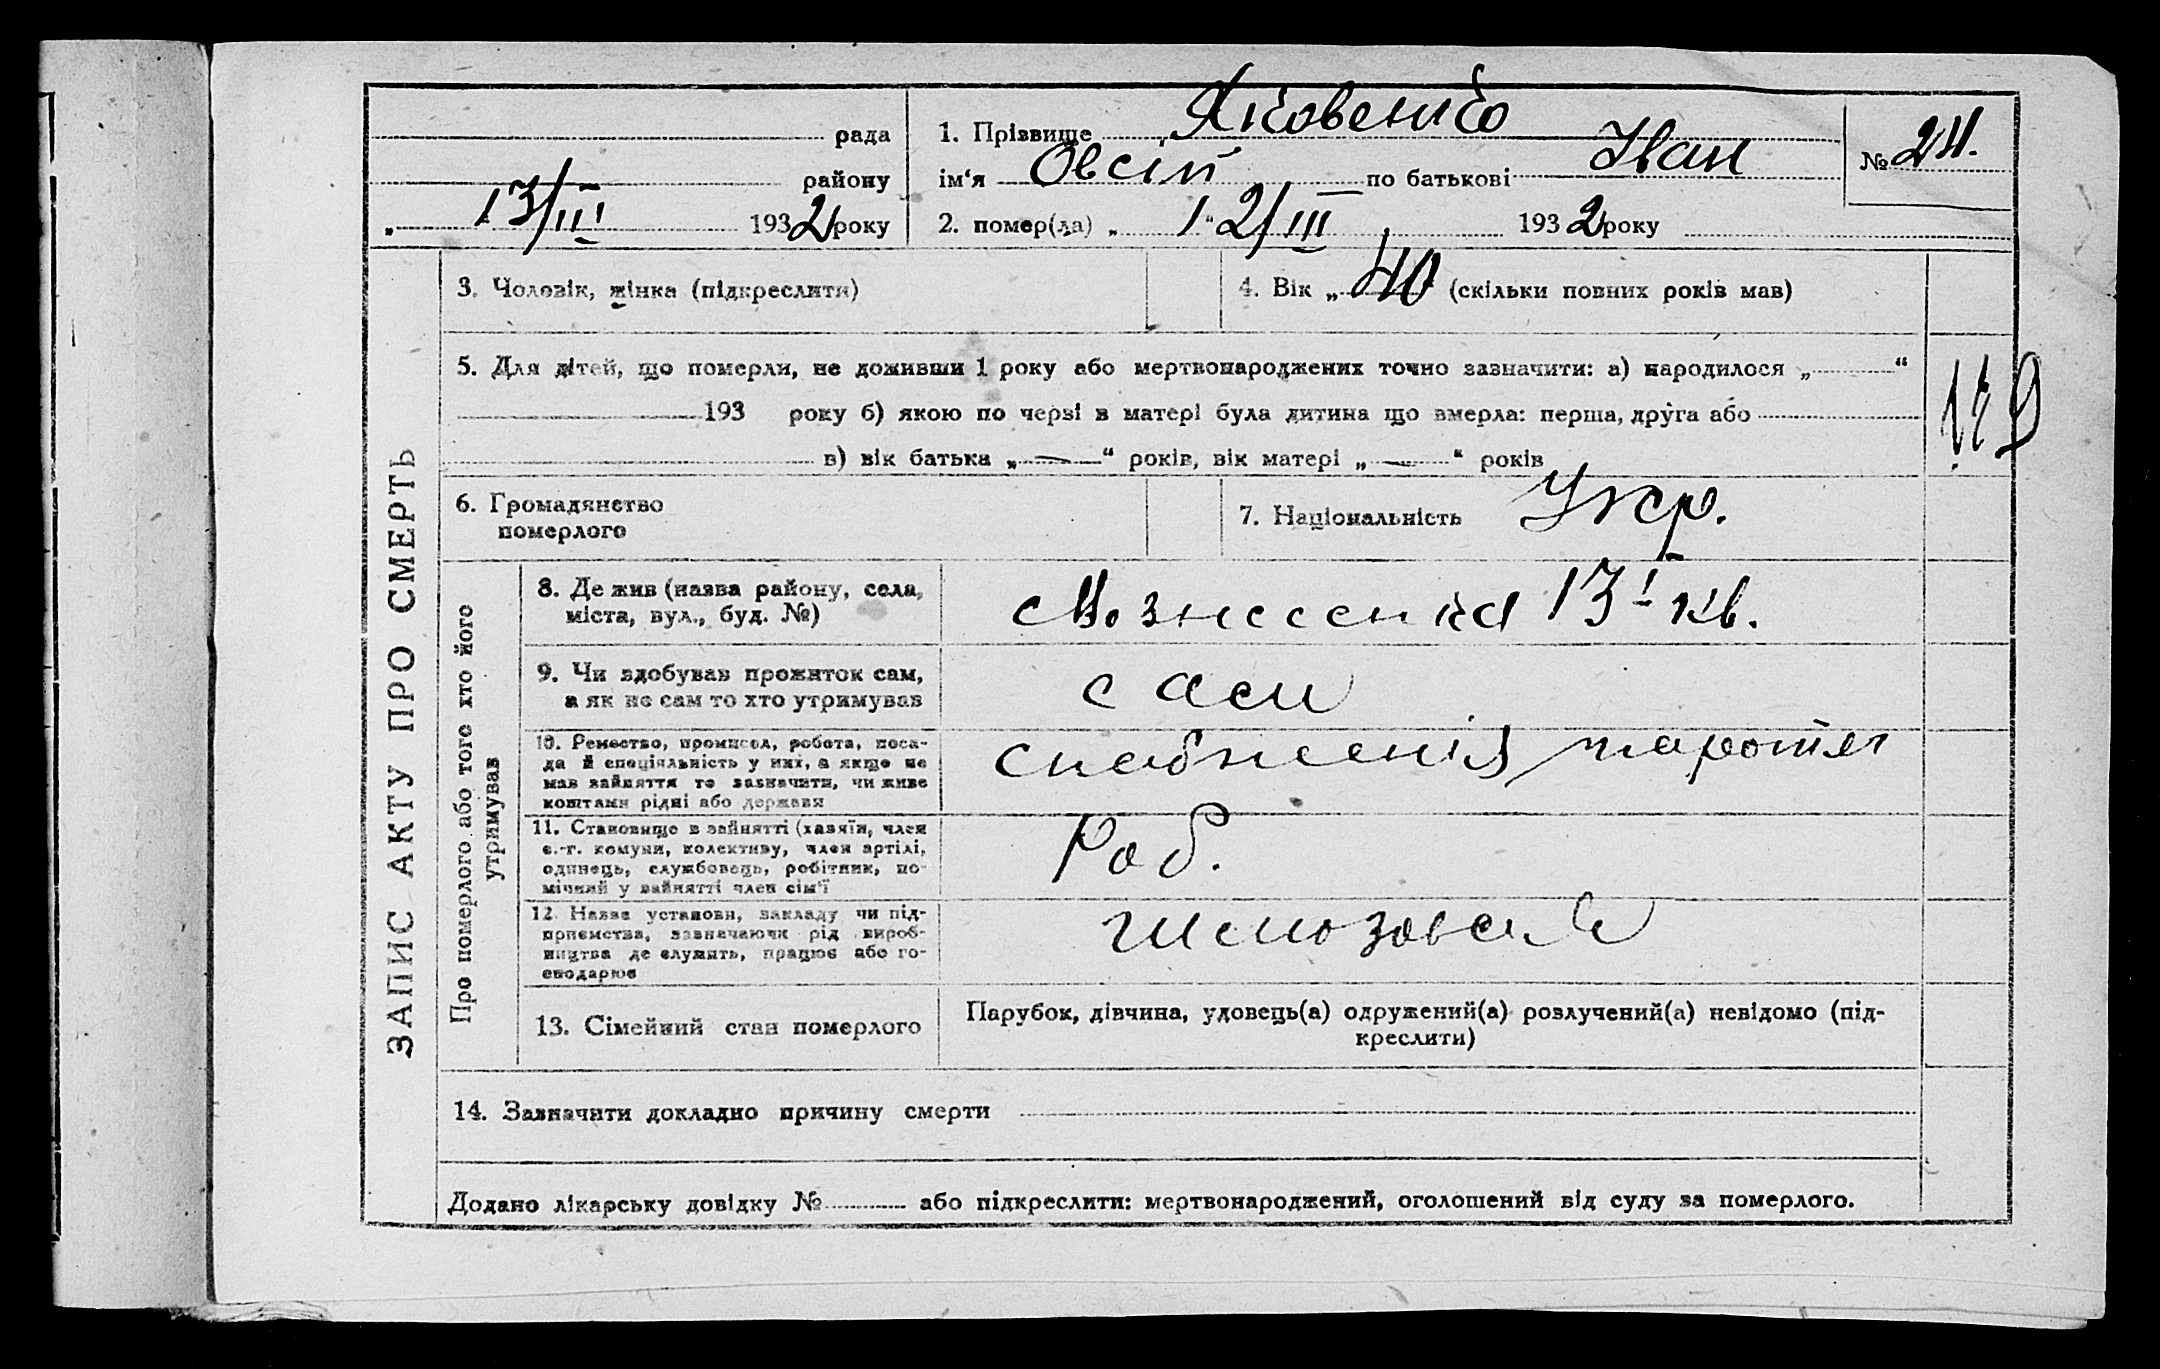 рада
району
13/III 1932 року
1. Прізвище Яковенко
ім'я Овсій по батькові Іван
2. помер(ла) „ 12/III 1932 року
№ 24.
ЗАПИС АКТУ ПРО СМЕРТЬ
3. Чоловік, жінка (підкреслити)
4. Вік „ 40 (скільки повних років мав)
5. Для дітей, що померли, не доживши 1 року або мертвонароджених точно зазначити: а) народилося „ “
193 року б) якою по черзі в матері була дитина що вмерла: перша, друга або
в) вік батька „ — “ років, вік матері „ — “ років
6. Громадянство
померлого
7. Національність Укр.
Про померлого або того хто його
утримував
8. Де жив (назва району, села,
міста, вул., буд. №)
с Вознесенка 13 І кв.
9. Чи здобував прожиток сам,
а як не сам то хто утримував
сам
10. Ремество, промисел, робота, поса-
да й спеціяльність у них, а якщо не
мав зайняття то зазначити, чи живе
коштами рідні або держави
11. Становище в зайнятті (хазяїн, член
с.-г. комуни, колективу, член артілі,
одинець, службовець, робітник, по-
мічний у зайнятті член сім'ї
Роб.
12. Назва установи, закладу чи під-
приємства, зазначаючи рід вироб-
ництва де служить, працює або го-
сподарює
13. Сімейний стан померлого
Парубок, дівчина, удовець(а) одружений(а) розлучений(а) невідомо (під-
креслити)
14. Зазначити докладно причину смерти
Додано лікарську довідку № або підкреслити: мертвонароджений, оголошений від суду за померлого.